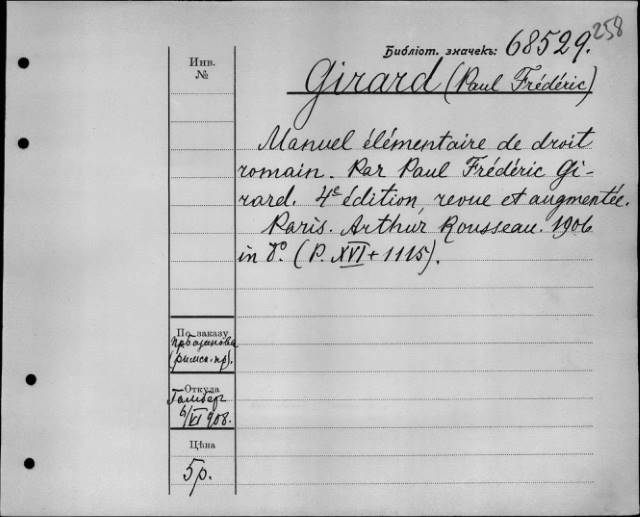 258
Библіот. значекъ: 68529.
Girard (Paul Frédéric)
Инв.
№
Manuel élémentaire de droit
romain. Par Paul Frédéric Gi-
rard. 4e édition, revue et augmentée.
Paris. Arthur Rousseau. 1906
in 8o. (P. XVI + 1115).
По заказу
(римск. пр).
Откуда
6/VI 908.
Цѣна
5р.